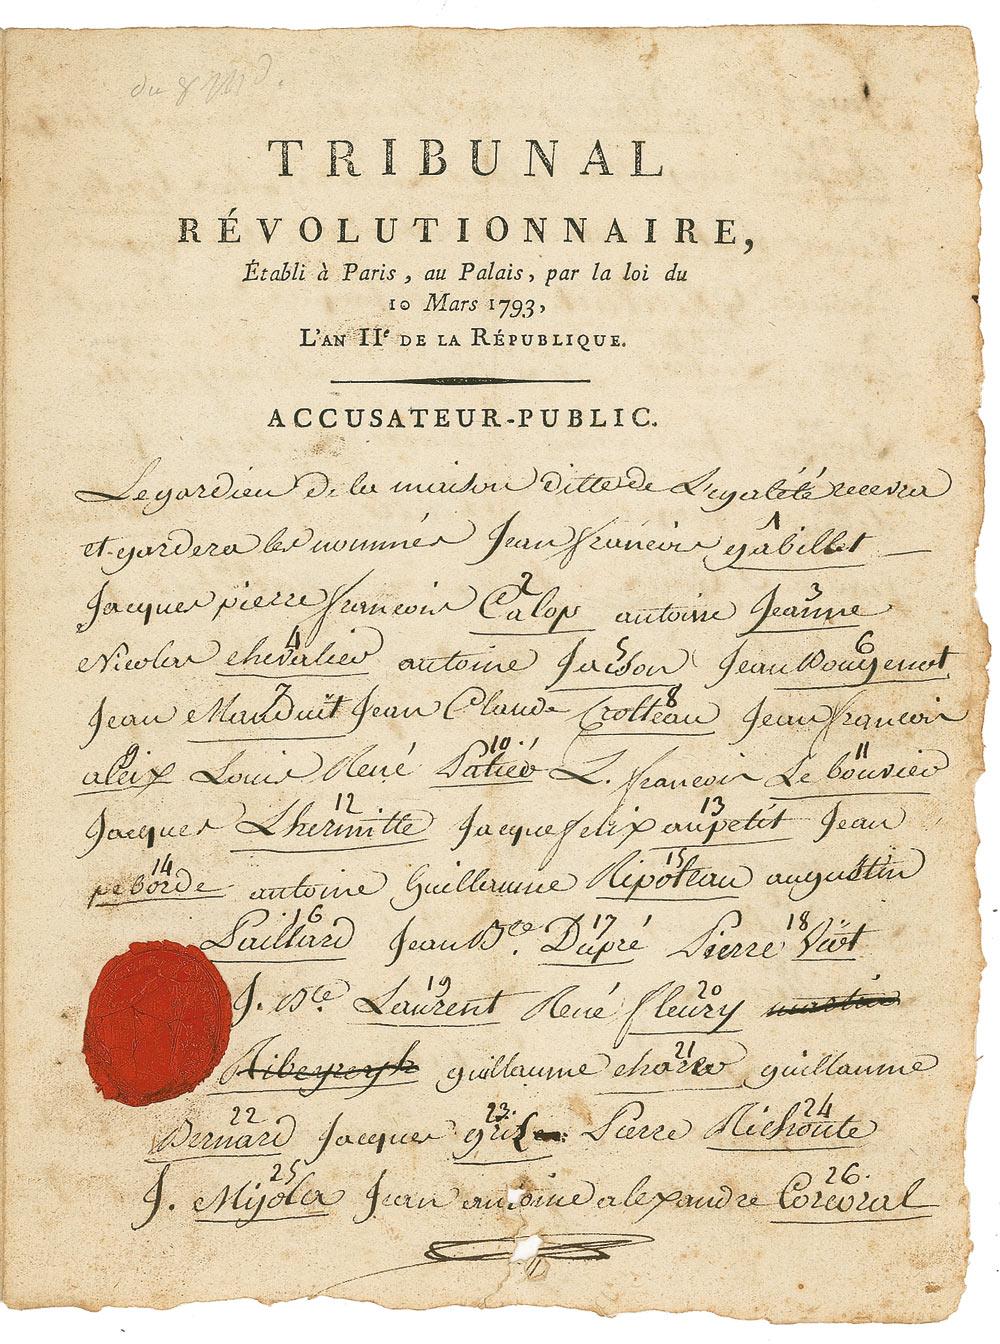 TRIBUNAL
RÉVOLUTIONNAIRE,
Établi à Paris, au Palais, par la loi du
10 Mars 1793,
L'AN IIe DE LA RÉPUBLIQUE.
ACCUSATEUR-PUBLIC.
Le gardien de la maison ditte de L'egalité recevra
1
et gardera les nommés Jean françois gabillet
2 3
Jacques pierre françois Calop antoine Jeanne
4 5 6
Nicolas chevalier antoine Jaisson Jean Bougenot
7 8
Jean Mauduit Jean Claude Crotteau Jean françois
9 10 11
aleix Louis René Patier L. françois Le bouvier
12 13
Jacques Lhermitte Jacque felix aupetit Jean
14 15
peborde antoine Guillaume Ripoteau augustin
16 17 18
Paillard Jean Bte. Dupré Pierre Viot
19 20
J. Bte Laurent René fleury
21
guillaume chorer guillaume
22 23. 24
Bernard Jacques Pierre Richoute
25 26.
J. Mijola Jean antoine alexandre Corcoral